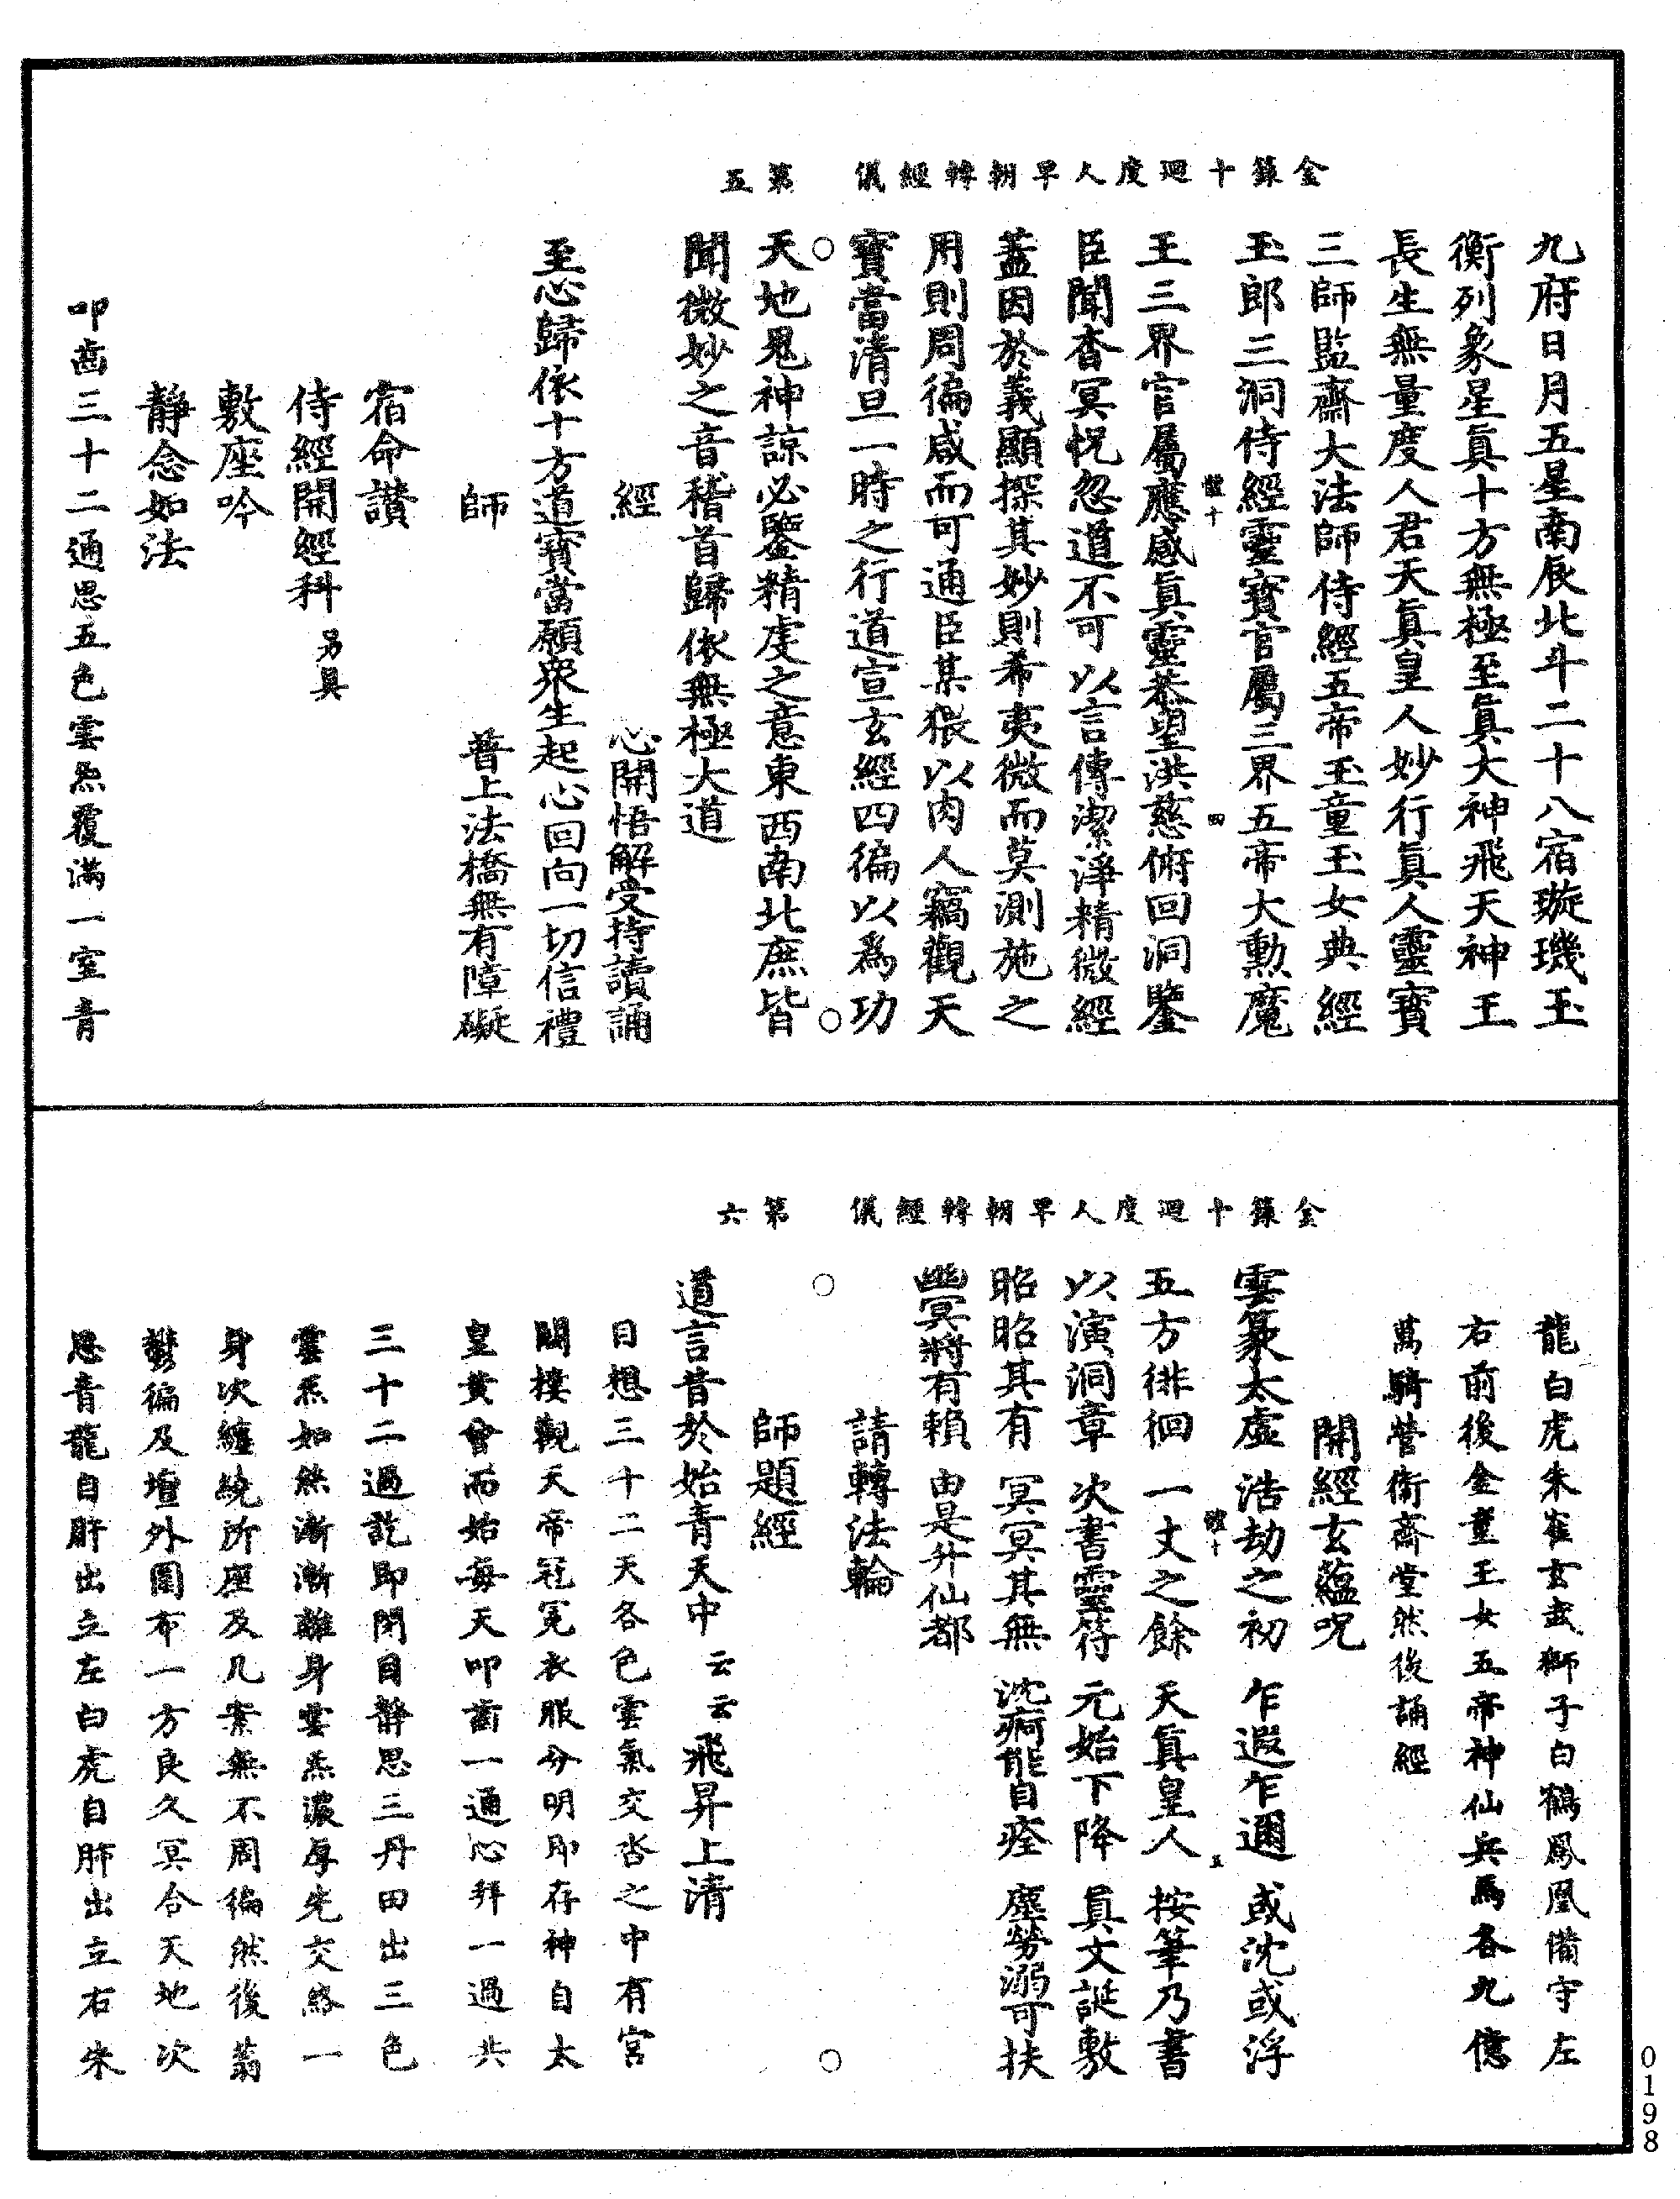 金籙十廻度人早朝轉經儀　第五
九府日月五星南辰北斗二十八宿璇璣玉
衡列象星眞十方無極至眞大神飛天神王
長生無量度人君天眞皇人妙行眞人靈寶
三師監齋大法師侍經五帝玉童玉女典經
玉郎三洞侍經靈寶官屬三界五帝大勲魔
體十　四
王三界官屬應感眞靈恭望洪慈俯回洞鑒
臣聞杳冥怳忽道不可以言傳潔淨精微經
蓋因於義顯探其妙則希夷微而莫測施之
用則周徧咸而可通臣某猥以肉人竊觀天
寶當清旦一時之行道宣玄經四徧以爲功
天地鬼神諒必鑒精虔之意東西南北庶皆
聞微妙之音稽首歸依無極大道
經　心開悟解受持讀誦
至心歸依十方道寶當願衆生起心回向一切信禮
師　普上法橋無有障礙
宿命讃
侍經開經科另具
敷座吟
靜念如法
叩齒三十二通思五色雲炁覆滿一室青
金籙十廻度人早朝轉經儀　第六
龍白虎朱雀玄武獅子白鶴鳳凰備守左
右前後金童玉女五帝神仙兵馬各九億
萬騎營衞齋堂然後誦經
開經玄蘊呪
雲篆太虛　浩劫之初　乍遐乍邇　或沈或浮
體十　五
五方徘徊　一丈之餘　天眞皇人　按筆乃書
以演洞章　次書靈符　元始下降　眞文誕敷
昭昭其有　冥冥其無　沈痾能自痊　塵勞溺可扶
幽冥將有賴　由是升仙都
請轉法輪
師題經
道言昔於始青天中云云飛昇上清
目想三十二天各色雲氣交沓之中有宮
闕樓觀天帝冠冕衣服分明即存神自太
皇黄曾而始每天叩齒一通心拜一過共
三十二過訖即閉目靜思三丹田出三色
雲炁如絲漸漸離身雲炁濃厚先交絡一
身次纏繞所座及几案無不周徧然後蓊
鬱徧及壇外圍布一方良久冥合天地次
思青龍自肝出立左白虎自肺出立右朱
0198